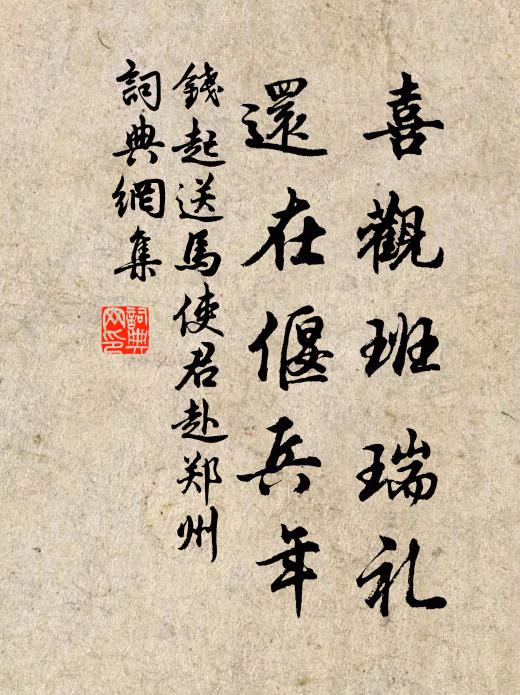 喜觀班瑞礼
還在偃兵年
錢起送馬使君赴郑州
詞典網集
詞典
网印